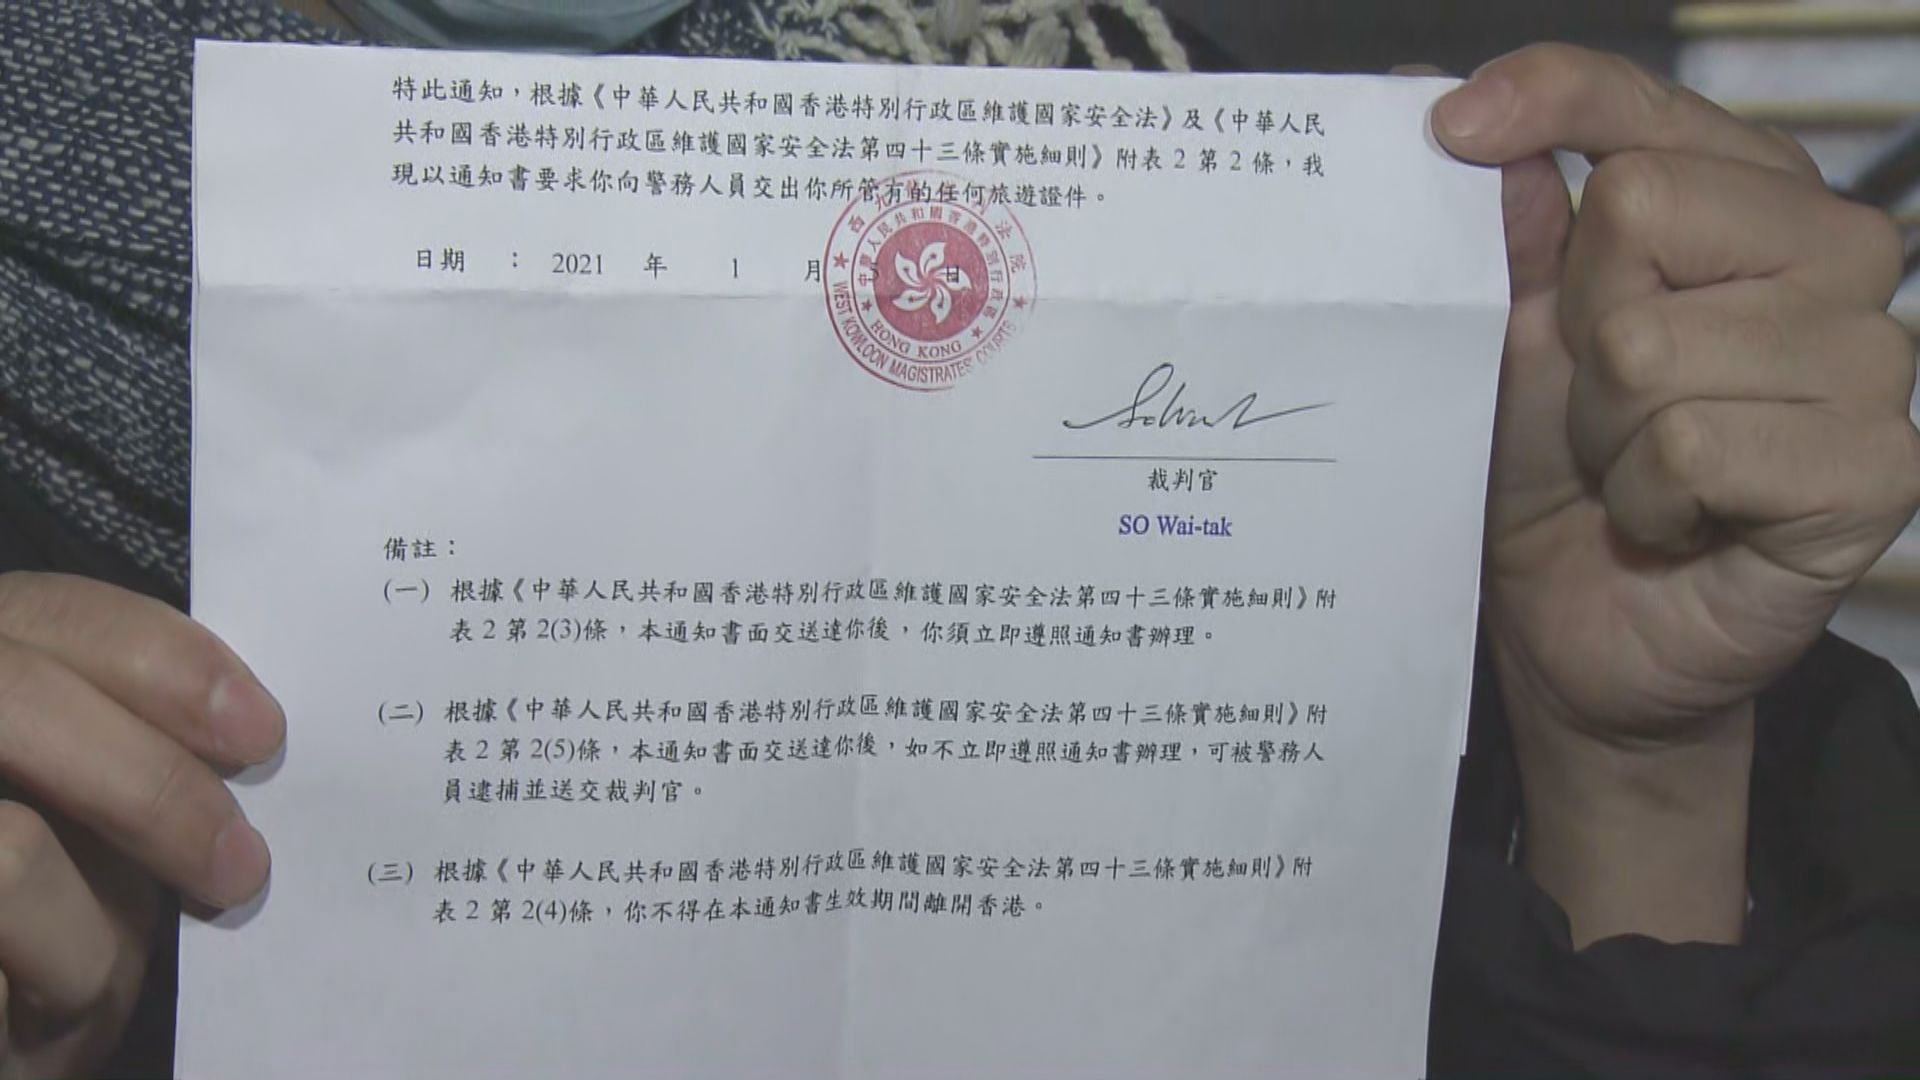 特此通知，根據《中華人民共和國香港特別行政區維護國家安全法》及《中華人民
共和國香港特別行政區維護國家安全法第四十三條實施細則》附表 2 第 2 條，我
現以通知書要求你向警務人員交出你所管有的任何旅遊證件。
日期 ： 2021 年 1 月 5 日
西九 法院
中華人民共和國香港特別行政區
HONG KONG
WEST KOWLOON MAGISTRATES' COURTS
裁判官
SO Wai-tak
備註：
(一) 根據《中華人民共和國香港特別行政區維護國家安全法第四十三條實施細則》附
表 2 第 2(3)條，本通知書面交送達你後，你須立即遵照通知書辦理。
(二) 根據《中華人民共和國香港特別行政區維護國家安全法第四十三條實施細則》附
表 2 第 2(5)條，本通知書面交送達你後，如不立即遵照通知書辦理，可被警務人
員逮捕並送交裁判官。
(三) 根據《中華人民共和國香港特別行政區維護國家安全法第四十三條實施細則》附
表 2 第 2(4)條，你不得在本通知書生效期間離開香港。